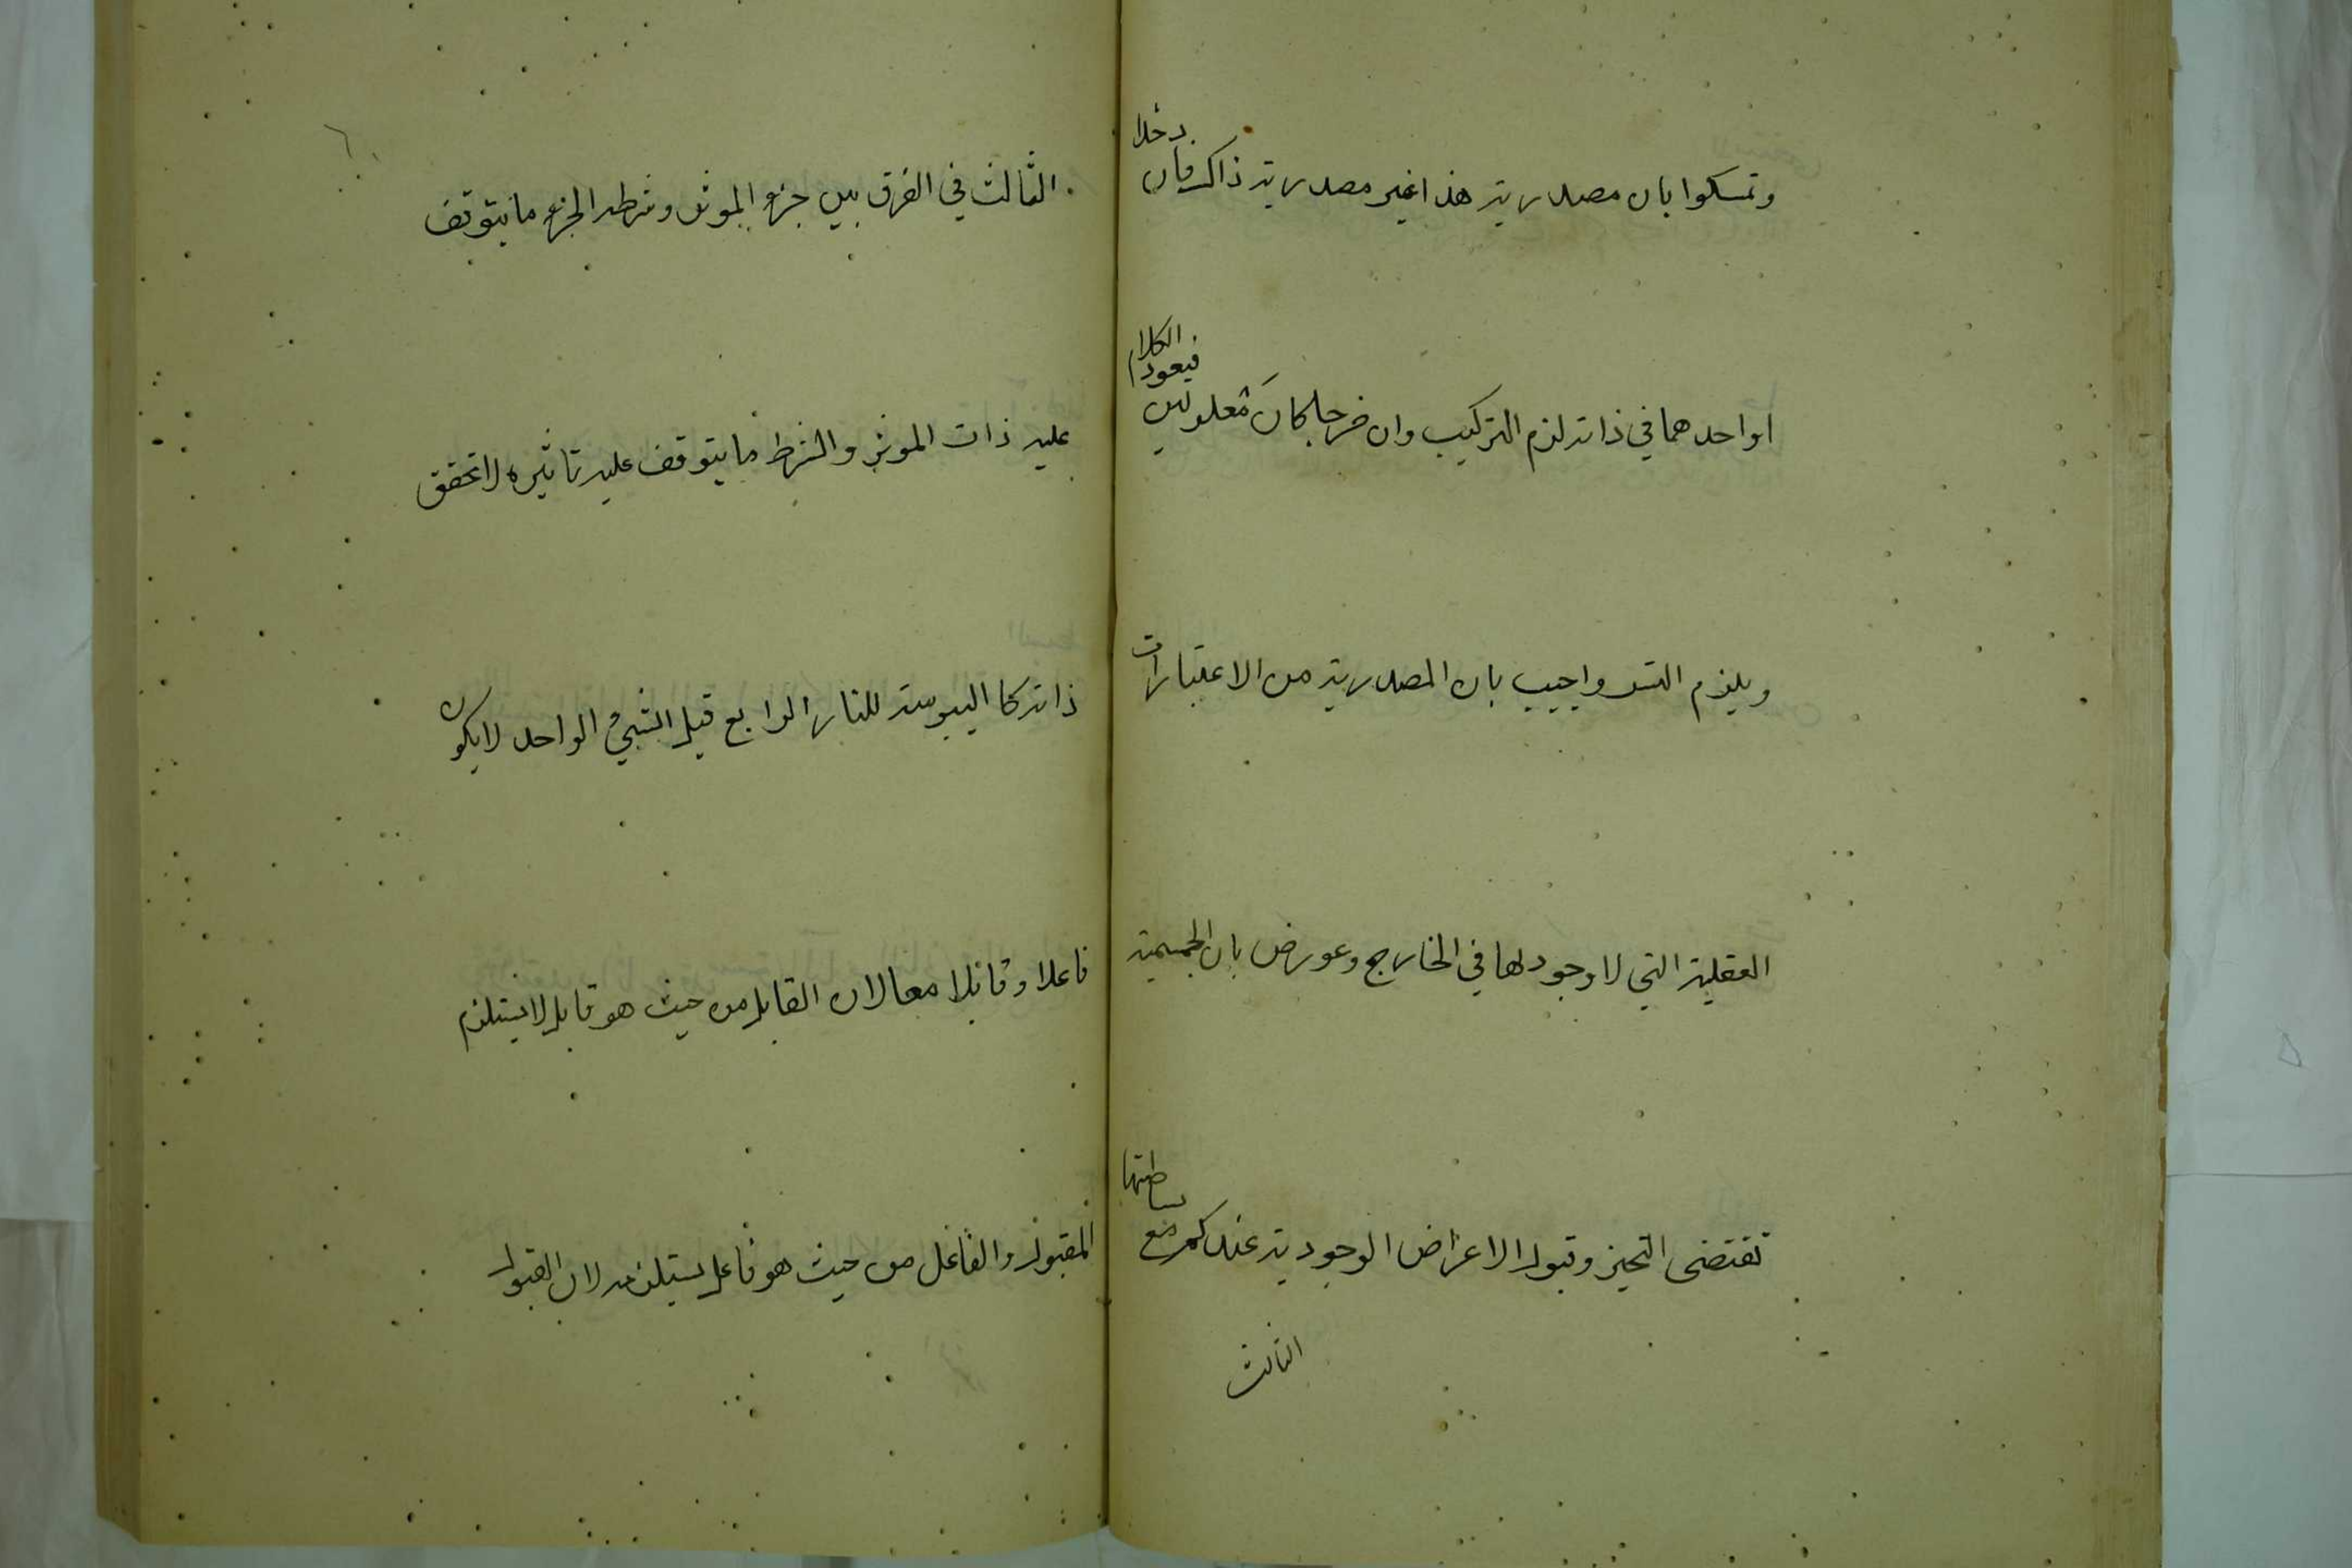 وتمسكوا بان مصدرية هذا غير مصدرية ذاك فان دخلا
او احدهما في ذاته لزم التركيب وان خرجا كانا معلولين فيعود الكلام
ويلزم التس واجيب بان المصدرية من الاعتبارات
العقلية التي لا وجود لها في الخارج وعورض بان الجسمية
تقتضى التحيز وقبول الاعراض الوجودية عندكم مع بساطتها
الثالث
الثالث في الفرق بين جزء الموثر وشرطه الجزء ما يتوقف
عليه ذات الموثر والشرط ما يتوقف عليه تاثيره لا تحقق
ذاته كا اليبوسة للنار الرابع قيل الشيء الواحد لا يكون
فاعلا وقابلا معا لان القابل من حيث هو قابل لا يستلزم
المقبول والفاعل من حيث هو فاعل يستلزمه لان القبول